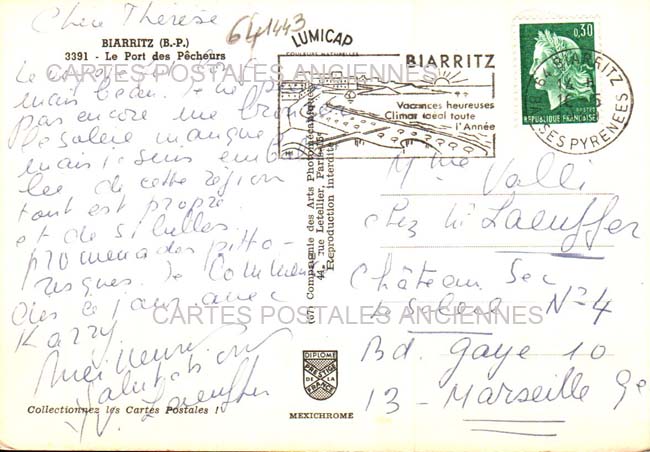 Chère Thérèse
641443
BIARRITZ (B.-P.)
3391 - Le Port des Pêcheurs
CARTES POSTALES ANCIENNES
mais beau. Je ne
pas encore me
le soleil manque
mais je suis embal
lée de cette région
tout est propre
et de si belles
promenades pitto-
resques. Je commen
ce
Kazzy
Meilleures
Salutations
Laeuffer
CARTES POSTALES ANCIENNES
Collectionnez les Cartes Postales !
LUMICAP
COULEURS NATURELLES
(67) Compagnie des Arts Photomécaniques
44, rue Letellier, Paris-15e
Reproduction interdite
DIPLOME
PRESTIGE
DE LA
FRANCE
MEXICHROME
BIARRITZ
Vacances heureuses
Climat idéal toute
l'Année
0,30
POSTES
REPUBLIQUE FRANÇAISE
64 BIARRITZ
BSES PYRENEES
Mme Valli
chez Mr Laeuffer
Château Sec
Le Soleil N°4
Bd. Gaye 10
13 - Marseille 9e